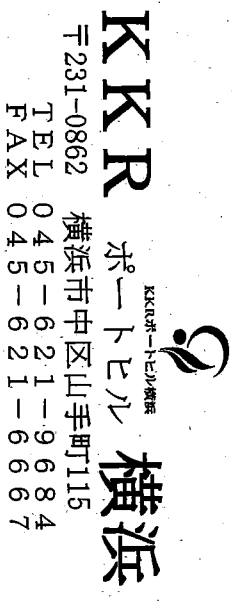 KKRポートヒル横浜
KKR ポートヒル 横浜
〒231-0862 横浜市中区山手町115
TEL 045-621-9684
FAX 045-621-6667